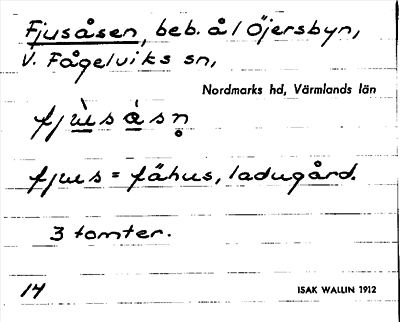 Fjusåsen, beb. å l Öjersbyn,
V. Fågelviks sn,
Nordmarks hd, Värmlands län
fjùsàsn̥
fjus = fähus, ladugård.
3 tomter.
14
ISAK WALLIN 1912